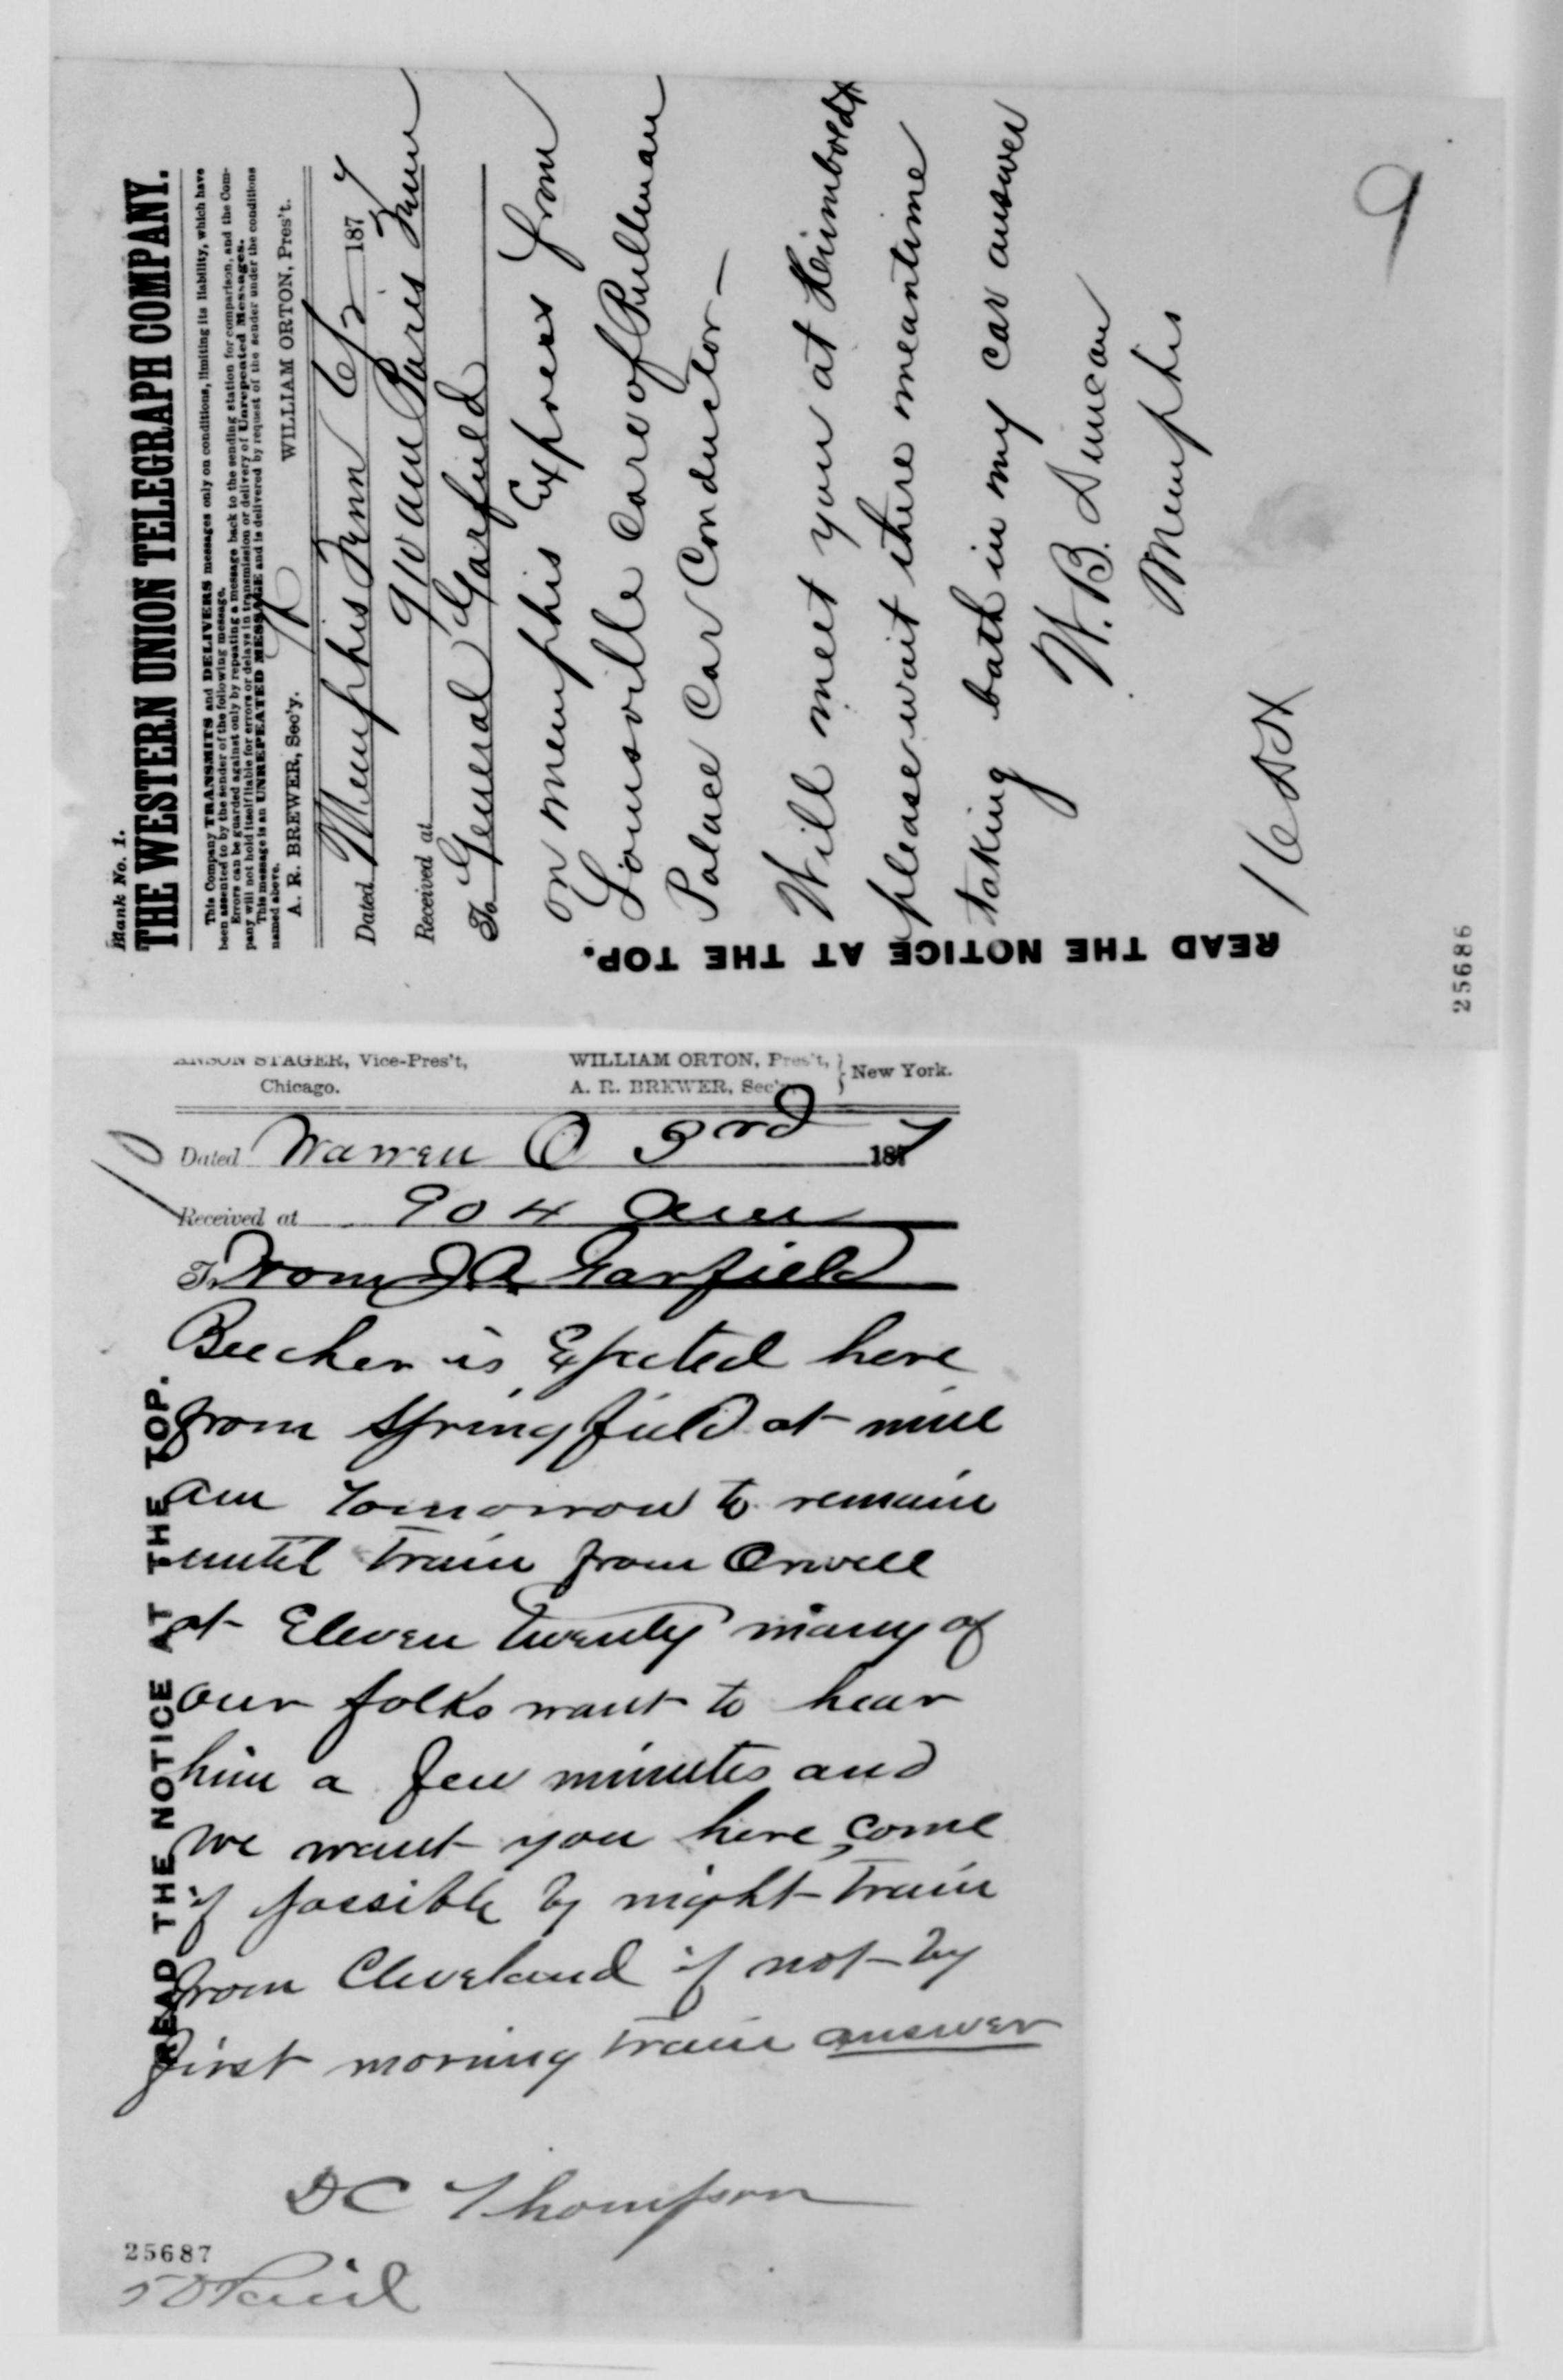 Blank No. 1.
THE WESTERN UNION TELEGRAPH COMPANY.
This Company TRANSMITS and DELIVERS messages only on conditions, limiting its liability, which have
been assented to by the sender of the following message.
Errors can be guarded against only by repeating a message back to the sending station for comparison, and the Com-
pany will not hold itself liable for errors or delays in transmission or delivery of Unrepeated Messages.
This message is an UNREPEATED MESSAGE and is delivered by request of the sender under the conditions
named above.
A. R. BREWER, Sec'y. WILLIAM ORTON, Pres't.
Dated Memphis Tenn 6/2 1877
Received at 910 am Paris Tenn
To General Garfield
on memphis Express from
Louisville Care of Pullman
Palace Car Conductor—
Will meet you at Heimboldt
please wait there meantime
taking bath in my car answer
W. B. Duncan
Memphis
16 DH
READ THE NOTICE AT THE TOP.
9
25686
ANSON STAGER, Vice-Pres't,
Chicago.
WILLIAM ORTON, Pres't,
A. R. BREWER, Sec'y,
New York.
10
Dated Warren O 3rd 1877
Received at 904 am
To Hon J. A. Garfield
Beecher is Expected here
from Springfield at nine
am Tomorrow to remain
until Train from Orwell
at Eleven Twenty many of
our folks want to hear
him a few minutes and
we want you here, come
if possible by night Train
from Cleveland if not by
first morning Train answer
D C Thompson
READ THE NOTICE AT THE TOP.
25687
50 Paid